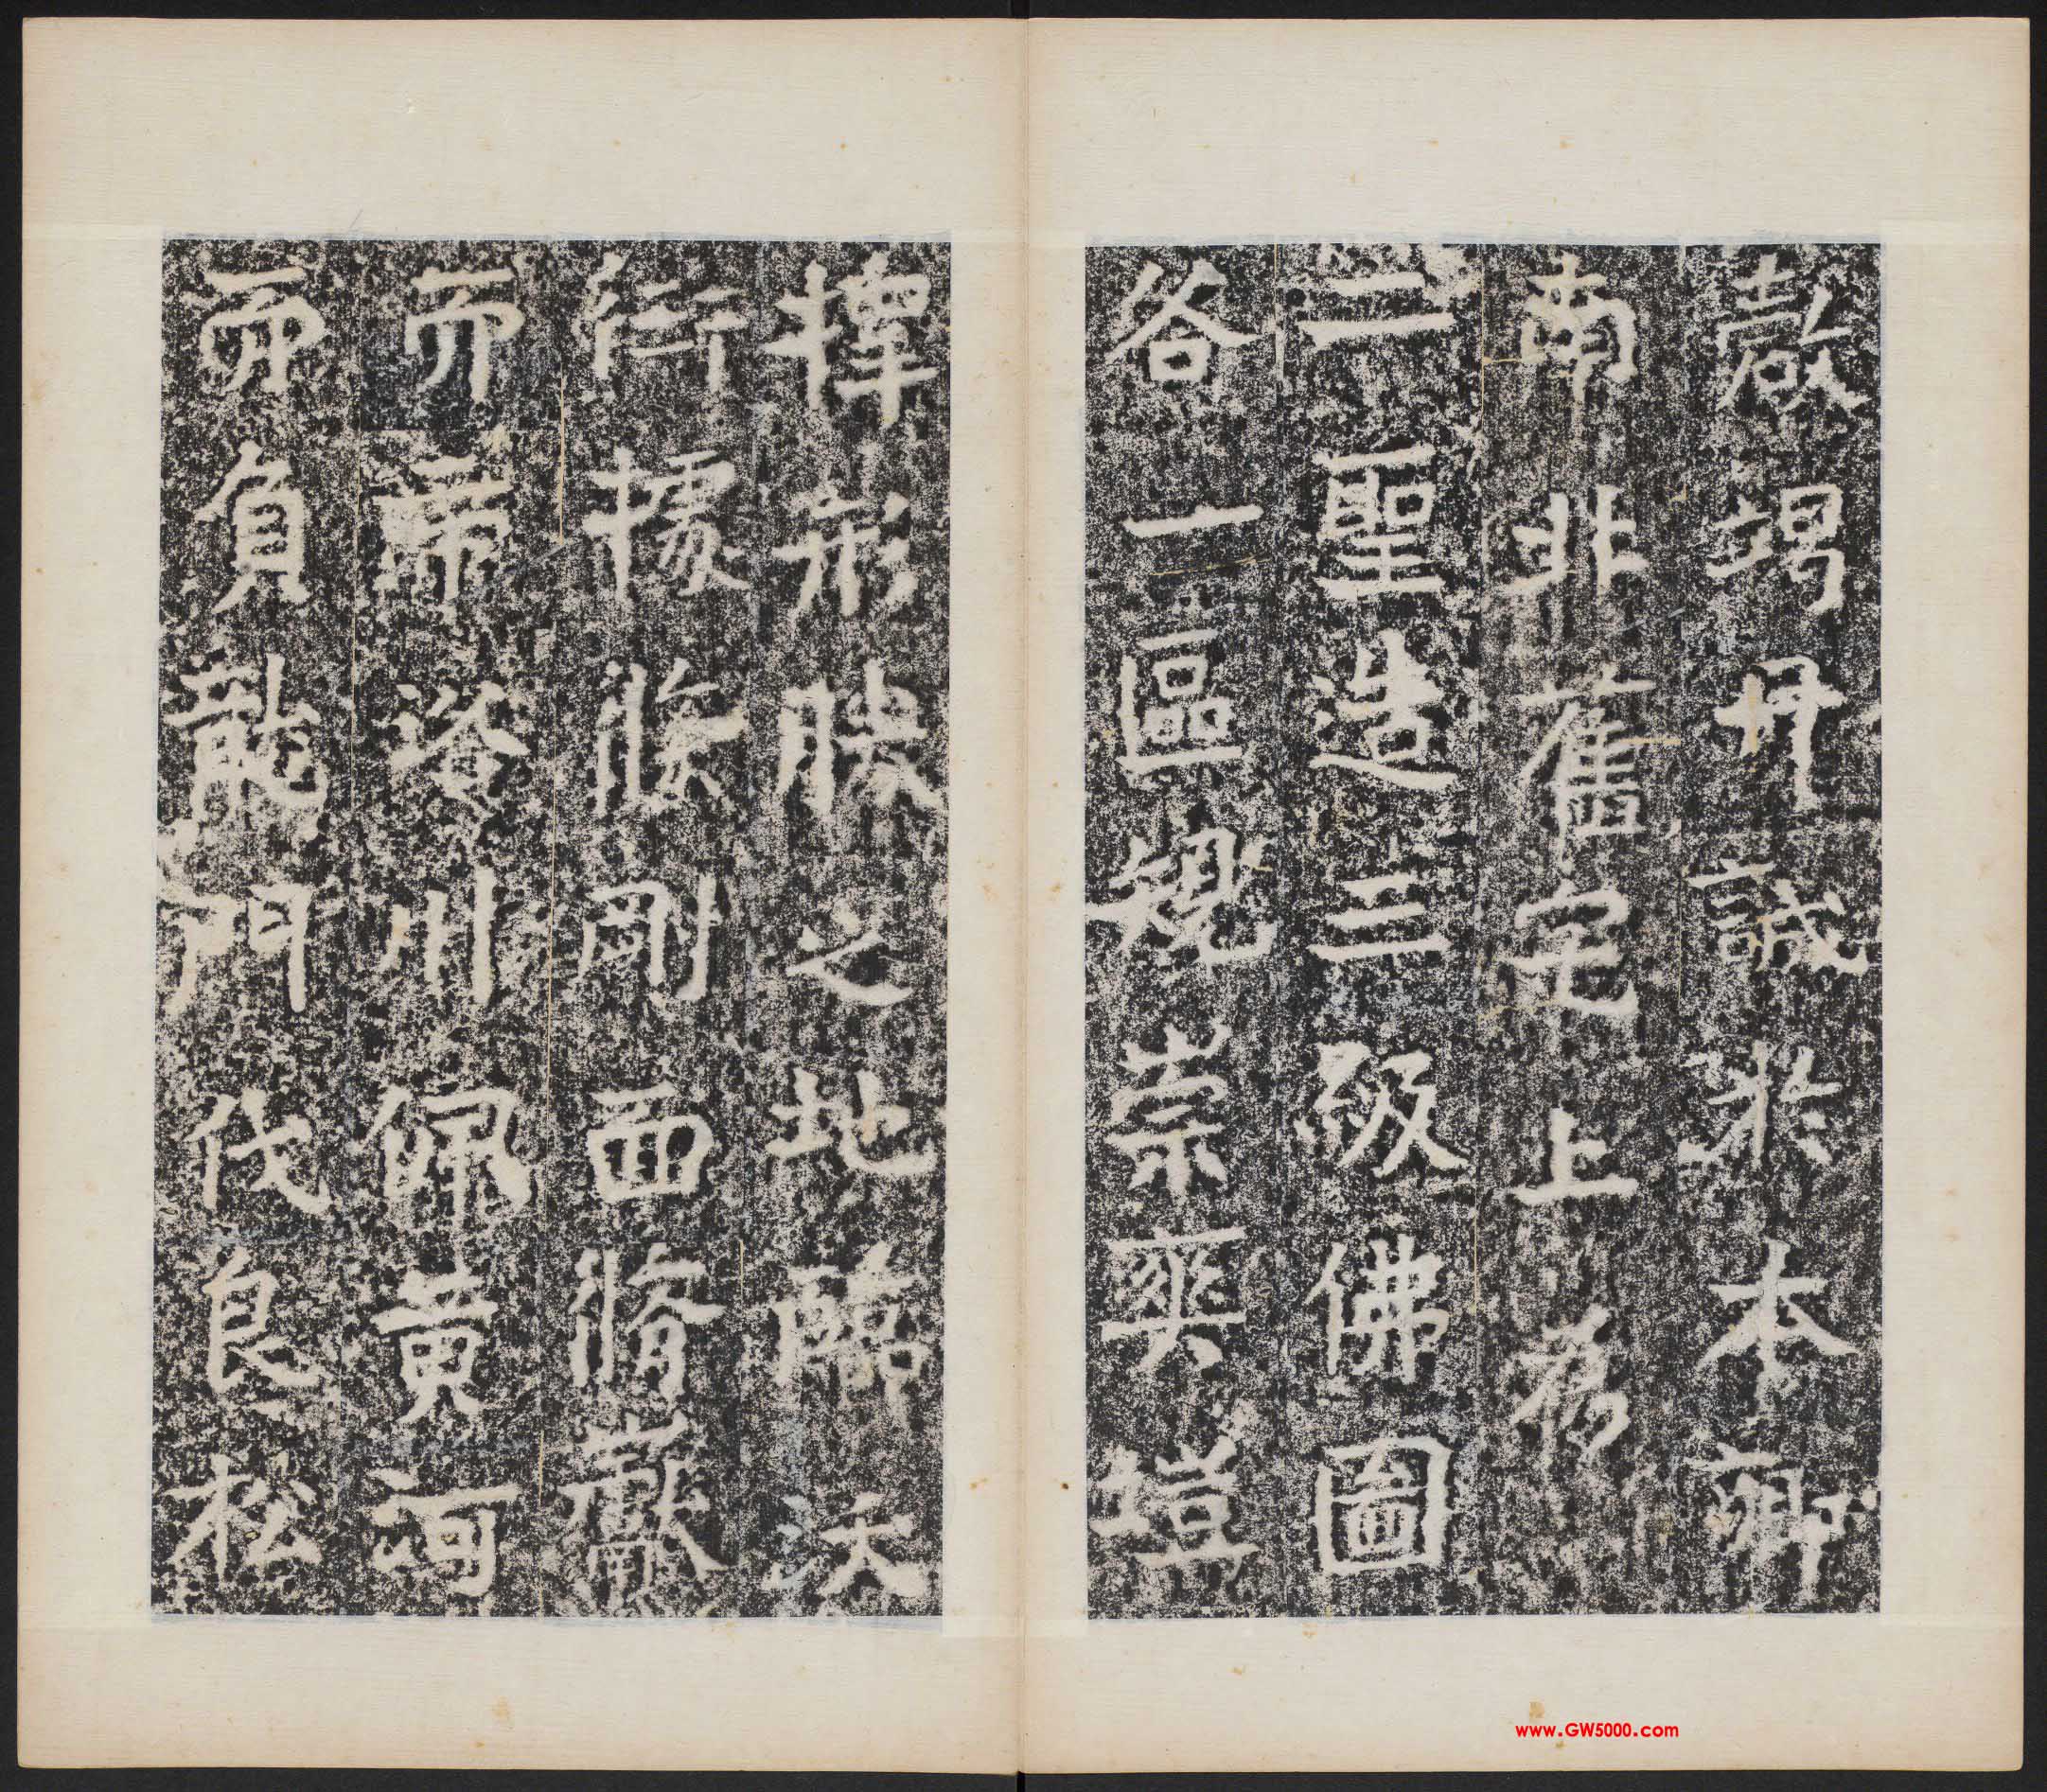 罄竭丹誠於本鄉
南北舊宅上為
二聖造三級佛圖
各一區規崇爽塏
擇形勝之地臨沃
衍據條剛面脩巘
而帶洛川佩黃河
而負龍門伐良松
www.GW5000.com